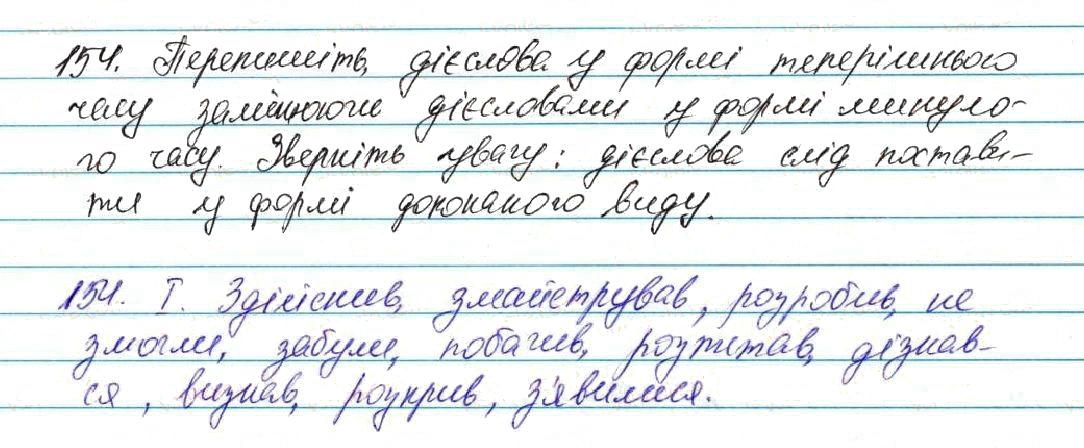 154. Перепишіть, дієслова у формі теперішнього
часу замінюючи дієсловами у формі минуло-
го часу. Зверніть увагу: дієслова слід постави-
ти у формі доконаного виду.
154. І. Здійснив, змайстрував, розробив, не
змогли, забули, побачив, розпитав, дізнав-
ся, визнав, розкрив, з'явилися.